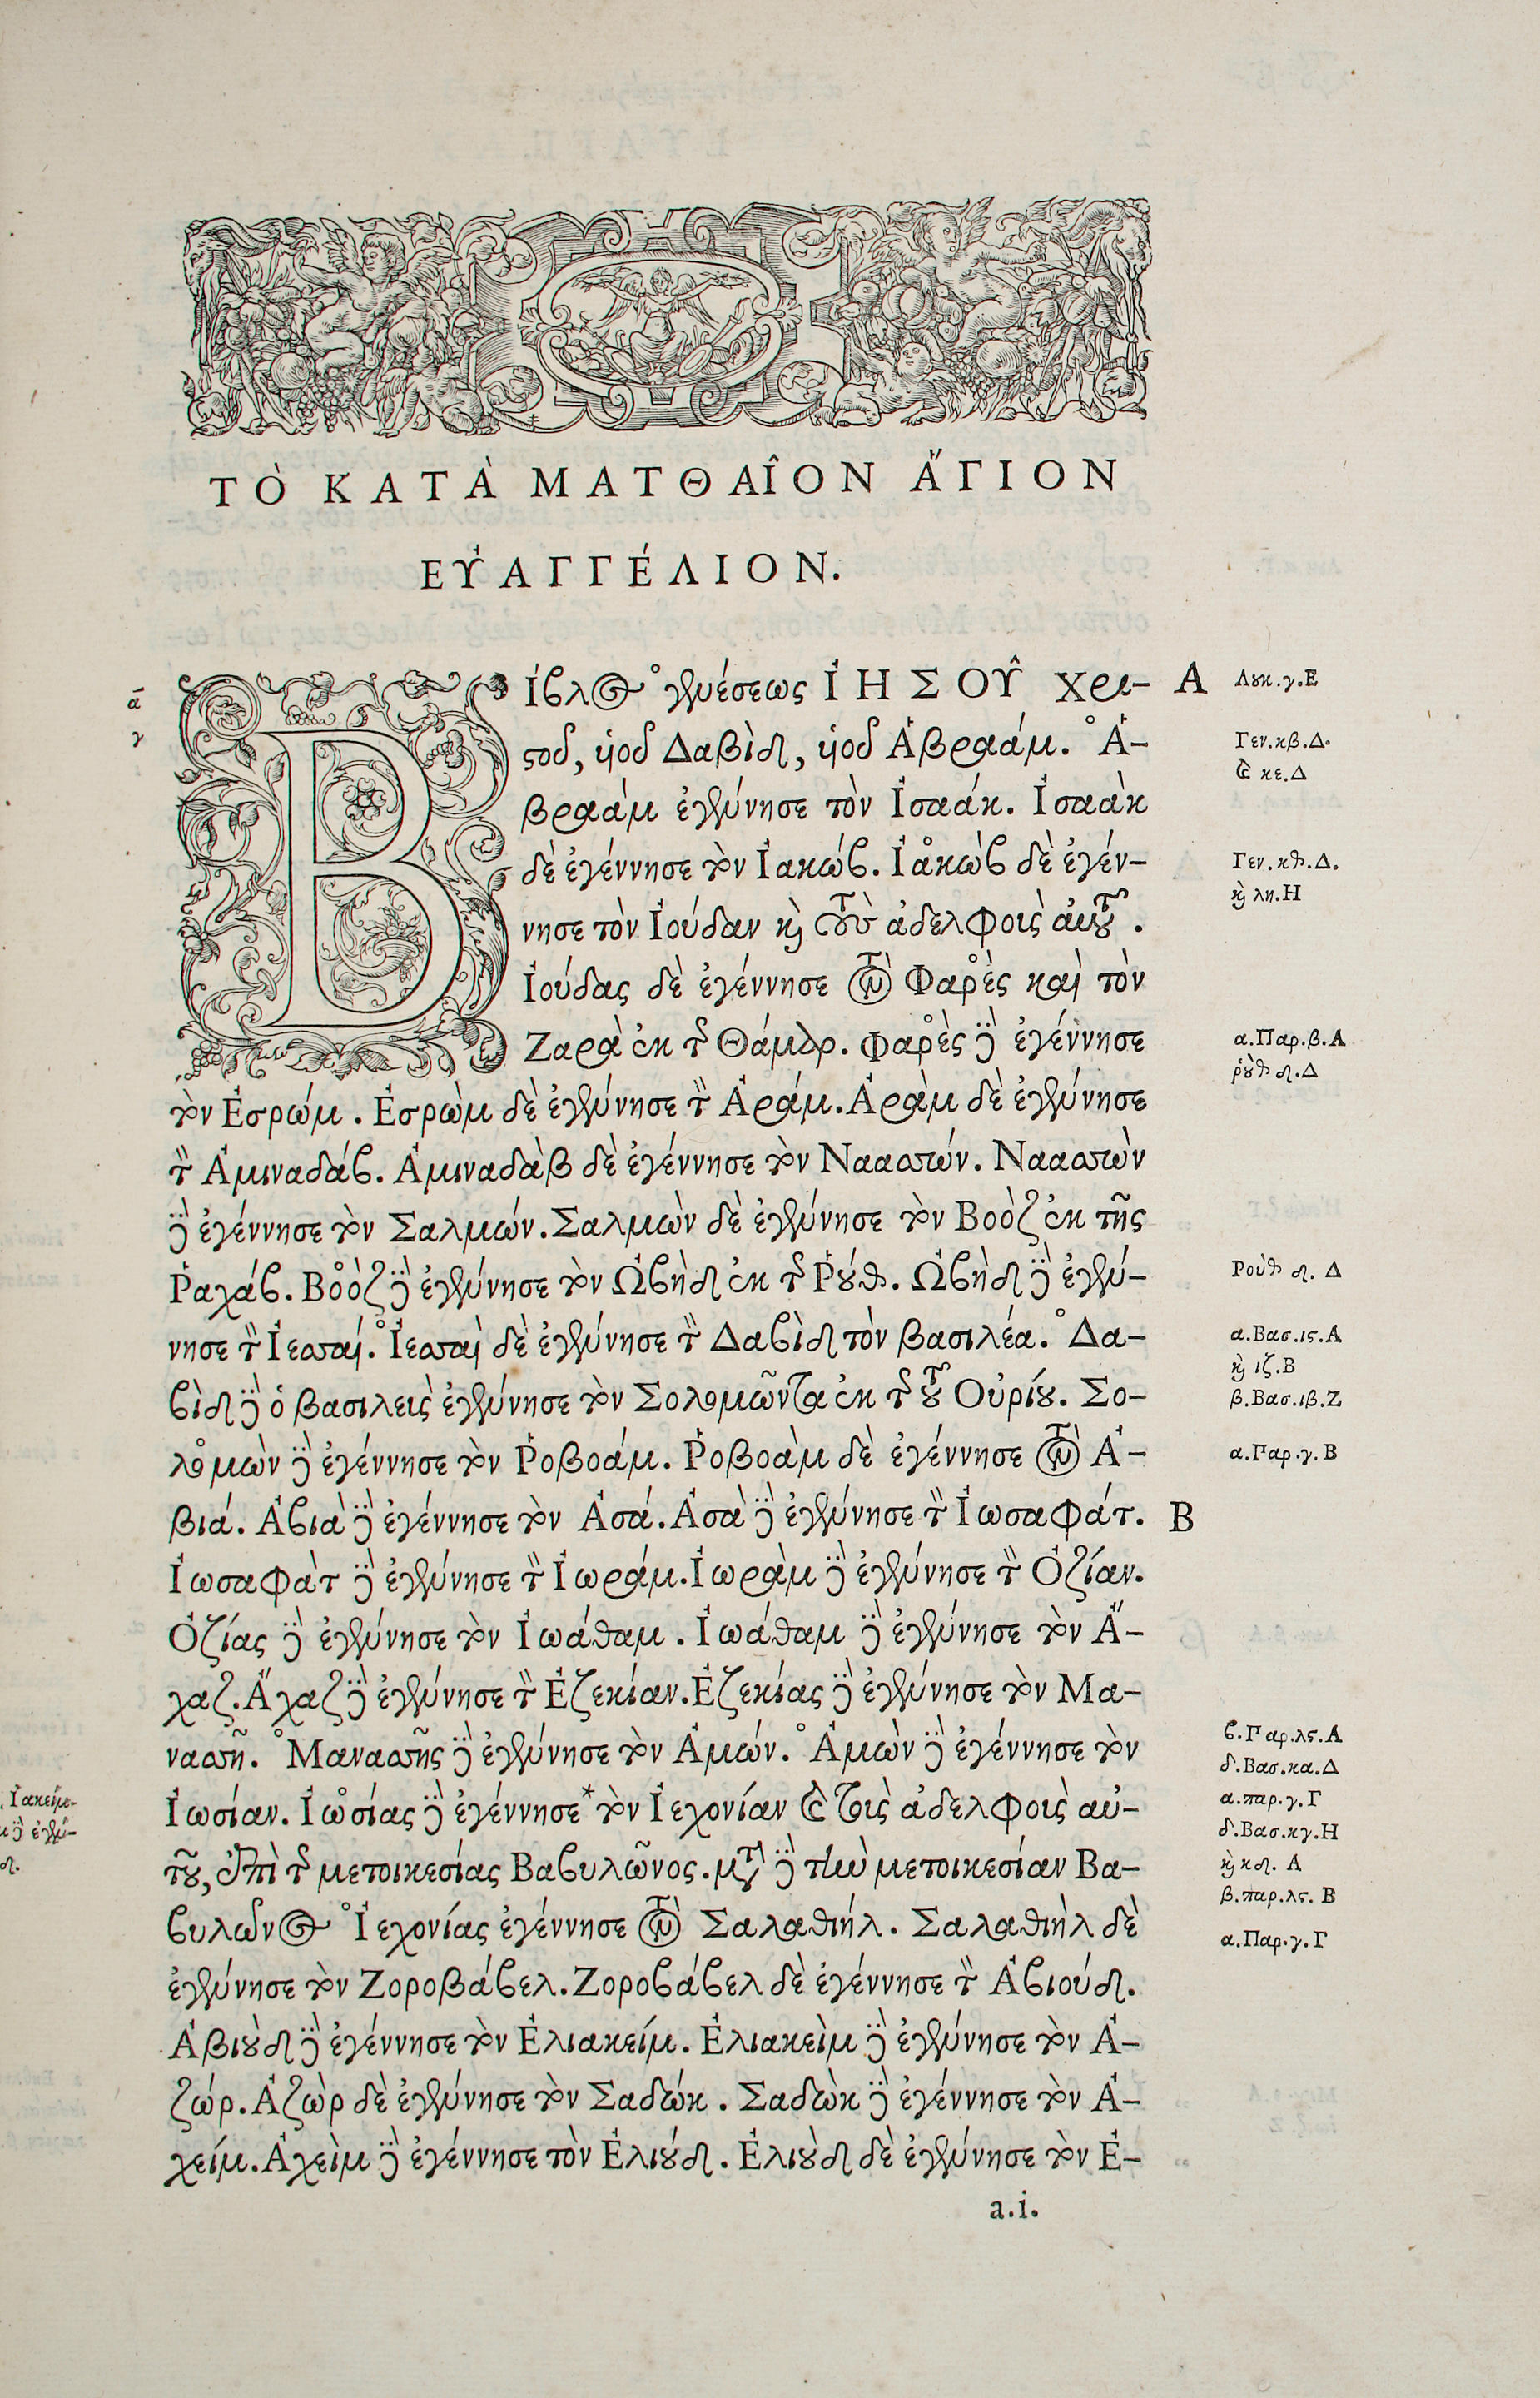 ΤῸ ΚΑΤᾺ ΜΑΤΘΑΙ͂ΟΝ ἍΓΙΟΝ
ΕΥ̓ΑΓΓΈΛΙΟΝ.
ΒΊβλος γενέσεως ἸΗΣΟΥ͂ Χρι-
στοῦ, υἱοῦ Δαβὶδ, υἱοῦ Ἀβραάμ. Ἀ-
βραὰμ ἐγέννησε τὸν Ἰσαάκ. Ἰσαὰκ
δὲ ἐγέννησε τὸν Ἰακώβ. Ἰακὼβ δὲ ἐγέν-
νησε τὸν Ἰούδαν καὶ τοὺς ἀδελφοὺς αὐτοῦ.
Ἰούδας δὲ ἐγέννησε τὸν Φαρὲς καὶ τὸν
Ζαρὰ ἐκ τῆς Θάμαρ. Φαρὲς δὲ ἐγέννησε
τὸν Ἐσρώμ. Ἐσρὼμ δὲ ἐγέννησε τὸν Ἀράμ. Ἀρὰμ δὲ ἐγέννησε
τὸν Ἀμιναδάβ. Ἀμιναδὰβ δὲ ἐγέννησε τὸν Ναασσών. Ναασσὼν
δὲ ἐγέννησε τὸν Σαλμών. Σαλμὼν δὲ ἐγέννησε τὸν Βοὸζ ἐκ τῆς
Ῥαχάβ. Βοὸζ δὲ ἐγέννησε τὸν Ὠβὴδ ἐκ τῆς Ῥούθ. Ὠβὴδ δὲ ἐγέν-
νησε τὸν Ἰεσσαί. Ἰεσσαὶ δὲ ἐγέννησε τὸν Δαβὶδ τὸν βασιλέα. Δα-
βὶδ δὲ ὁ βασιλεὺς ἐγέννησε τὸν Σολομῶντα ἐκ τῆς τοῦ Οὐρίου. Σο-
λομὼν δὲ ἐγέννησε τὸν Ῥοβοάμ. Ῥοβοὰμ δὲ ἐγέννησε τὸν Ἀ-
βιά. Ἀβιὰ δὲ ἐγέννησε τὸν Ἀσά. Ἀσὰ δὲ ἐγέννησε τὸν Ἰωσαφάτ.
Ἰωσαφὰτ δὲ ἐγέννησε τὸν Ἰωράμ. Ἰωρὰμ δὲ ἐγέννησε τὸν Ὀζίαν.
Ὀζίας δὲ ἐγέννησε τὸν Ἰωάθαμ. Ἰωάθαμ δὲ ἐγέννησε τὸν Ἄ-
χαζ. Ἄχαζ δὲ ἐγέννησε τὸν Ἐζεκίαν. Ἐζεκίας δὲ ἐγέννησε τὸν Μα-
νασσῆ. Μανασσῆς δὲ ἐγέννησε τὸν Ἀμών. Ἀμὼν δὲ ἐγέννησε τὸν
Ἰωσίαν. Ἰωσίας δὲ ἐγέννησε* τὸν Ἰεχονίαν καὶ τοὺς ἀδελφοὺς αὐ-
τοῦ, ἐπὶ τῆς μετοικεσίας Βαβυλῶνος. μετὰ δὲ τὴν μετοικεσίαν Βα-
βυλῶνος Ἰεχονίας ἐγέννησε τὸν Σαλαθιήλ. Σαλαθιὴλ δὲ
ἐγέννησε τὸν Ζοροβάβελ. Ζοροβάβελ δὲ ἐγέννησε τὸν Ἀβιούδ.
Ἀβιοὺδ δὲ ἐγέννησε τὸν Ἐλιακείμ. Ἐλιακεὶμ δὲ ἐγέννησε τὸν Ἀ-
ζώρ. Ἀζὼρ δὲ ἐγέννησε τὸν Σαδώκ. Σαδὼκ δὲ ἐγέννησε τὸν Ἀ-
χείμ. Ἀχεὶμ δὲ ἐγέννησε τὸν Ἐλιούδ. Ἐλιοὺδ δὲ ἐγέννησε τὸν Ἐ-
a.i.
ά
γ
Α
Β
Λουκ.γ.Ε
Γεν.κβ.Δ.
καὶ κε.Δ
Γεν.κθ.Δ.
καὶ λη.Η
α.Παρ.β.Α
ῥοὺθ δ.Δ
Ροὺθ δ. Δ
α.Βασ.ις.Α
καὶ ιζ.Β
β.Βασ.ιβ.Ζ
α.Παρ.γ.Β
β.Παρ.λς.Α
δ.Βασ.κα.Δ
α.παρ.γ.Γ
δ.Βασ.κγ.Η
καὶ κδ. Α
β.παρ.λς. Β
α.Παρ.γ.Γ